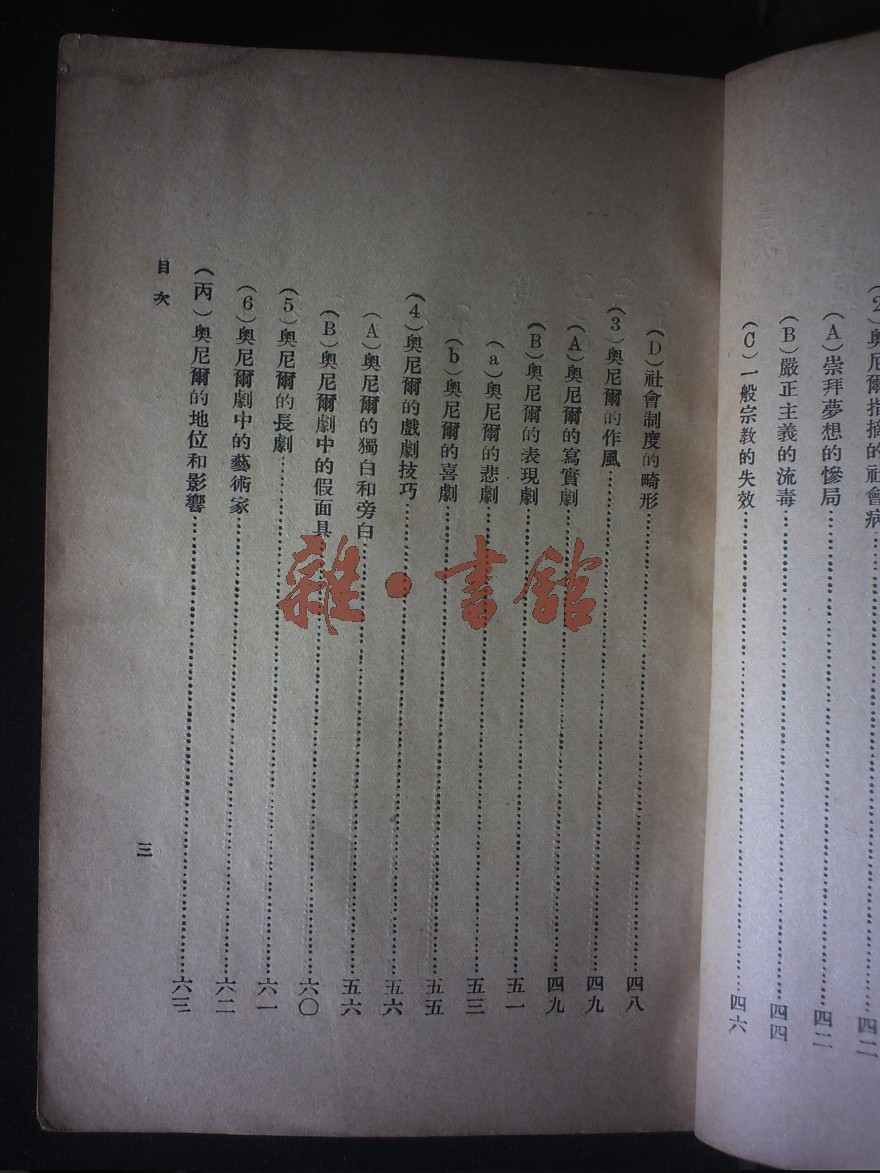 (2)奧尼爾指摘的社會病……四二
(A)崇拜夢想的慘局……四二
(B)嚴正主義的流毒……四四
(C)一般宗教的失效……四六
(D)社會制度的畸形……四八
(3)奧尼爾的作風……四九
(A)奧尼爾的寫實劇……四九
(B)奧尼爾的表現劇……五一
(a)奧尼爾的悲劇……五三
(b)奧尼爾的喜劇……五五
(4)奧尼爾的戲劇技巧……五六
(A)奧尼爾的獨白和旁白……五六
(B)奧尼爾劇中的假面具……六〇
(5)奧尼爾的長劇……六一
(6)奧尼爾劇中的藝術家……六二
(丙)奧尼爾的地位和影響……六三
目次
三
雜·書館